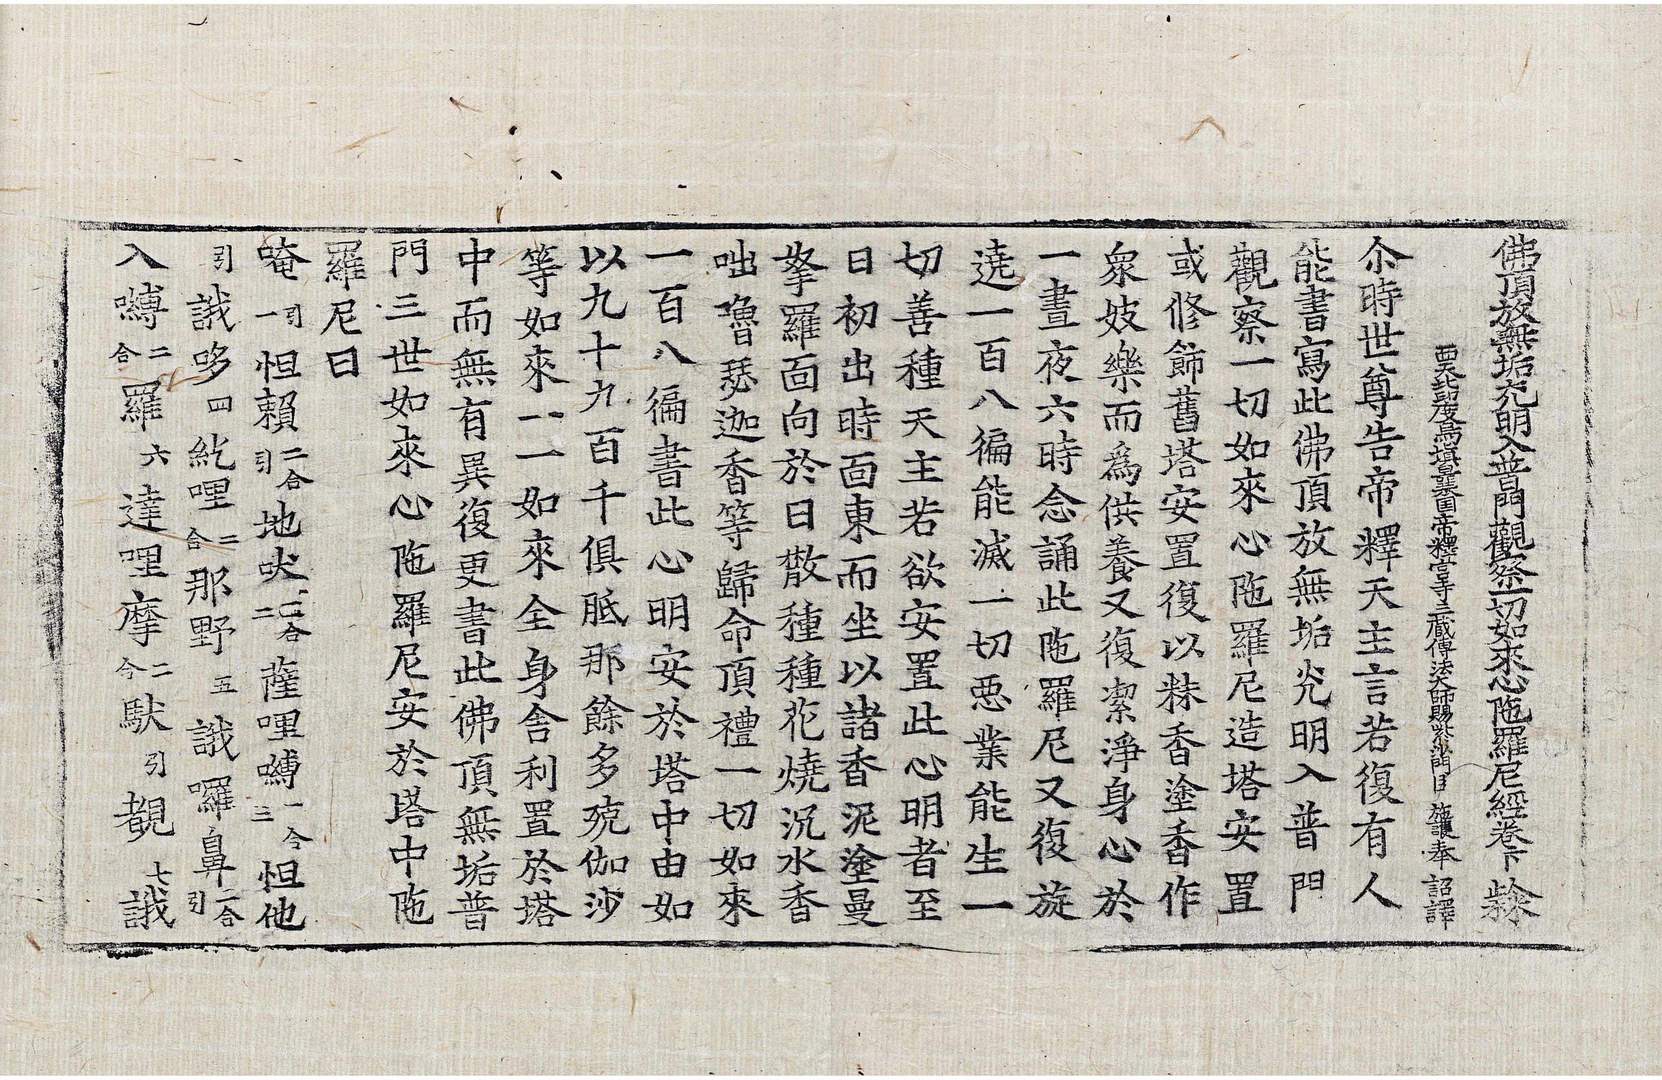 佛頂放無垢光明入普門觀察一切如來心陁羅尼經卷下
西天北印度烏塡曩國帝釋宮寺三藏傳法大師賜紫沙門臣施護奉 詔譯
尒時世尊告帝釋天主言若復有人
能書寫此佛頂放無垢光明入普門
觀察一切如來心陁羅尼造塔安置
或修飾舊塔安置復以粖香塗香作
衆妓樂而爲供養又復潔淨身心於
一晝夜六時念誦此陁羅尼又復旋
遶一百八徧能滅一切惡業能生一
切善種天主若欲安置此心明者至
日初出時面東而坐以諸香泥塗曼
拏羅面向於日散種種花燒沉水香
咄嚕瑟迦香等歸命頂禮一切如來
一百八徧書此心明安於塔中由如
以九十九百千俱胝那餘多殑伽沙
等如來一一如來全身舍利置於塔
中而無有異復更書此佛頂無垢普
門三世如來心陁羅尼安於塔中陁
羅尼曰
唵引一怛賴二合引地吠二合二薩哩嚩二合三怛他
引誐哆四紇哩二合那野五誐囉鼻二合引
入嚩二合羅六達哩摩二合馱引覩七誐